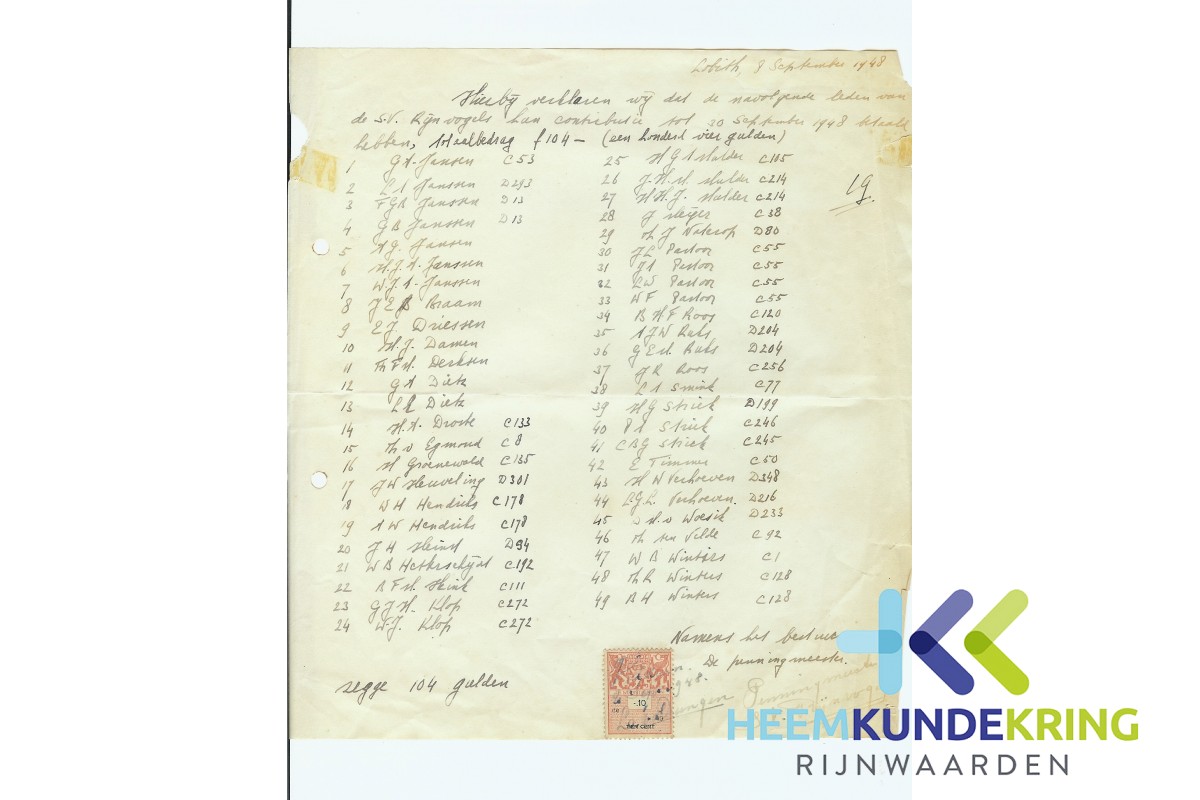 Lobith, 8 September 1948
Hierbij verklaren wij dat de navolgende leden van
de S.V. Rijnvogels hun contributie tot 30 September 1948 betaald
hebben, totaalbedrag f 104 — (een hondert vier gulden)
1 G A Jansen C 53
2 L A Janssen D 293
3 F G B Janssen D 13
4 G B Janssen D 13
5 A G. Janssen
6 H. J. A. Janssen
7 W. J. A. Janssen
8 J E B Braam
9 E J. Driessen
10 H. J. Damen
11 Th F H. Derksen
12 G A Dietz
13 L R Dietz
14 H. A. Droste C 133
15 Th v Egmond C 8
16 H Groenewold C 135
17 J W Heuveling D 301
18 W H Hendriks C 178
19 A W Hendriks C 178
20 J H Heinst D 94
21 W B C 192
22 B F H. Hink C 111
23 G J H. Klop C 272
24 W. J. Klop C 272
25 H G A Mulder C 105
26 J. H. H. Mulder C 214
27 H H. J. Mulder C 214
28 J Meijer C 38
29 Th J D 80
30 J L Pastoor C 55
31 J A Pastoor C 55
32 L W Pastoor C 55
33 W F Pastoor C 55
34 B H F Roos C 120
35 A J W Rubs D 204
36 G E H. Rubs D 204
37 J R Roos C 256
38 L A Smink C 77
39 H G Striek D 199
40 P A Striek C 246
41 C B G Striek C 245
42 E Timmer C 50
43 H W Verhoeven D 348
44 L. G. L. Verhoeven D 216
45 D H. v Woesik D 233
46 Th ten Velde C 92
47 W B Winters C 1
48 Th R Winters C 128
49 B H Winters C 128
Namens het bestuur
De penningmeester.
1948.
Penningmeester
zegge 104 gulden
10
HEEMKUNDEKRING
RIJNWAARDEN